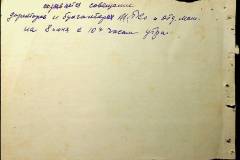 созывается совещание
директоров и бухгалтеров
на 8 июня с 10 часам утра.